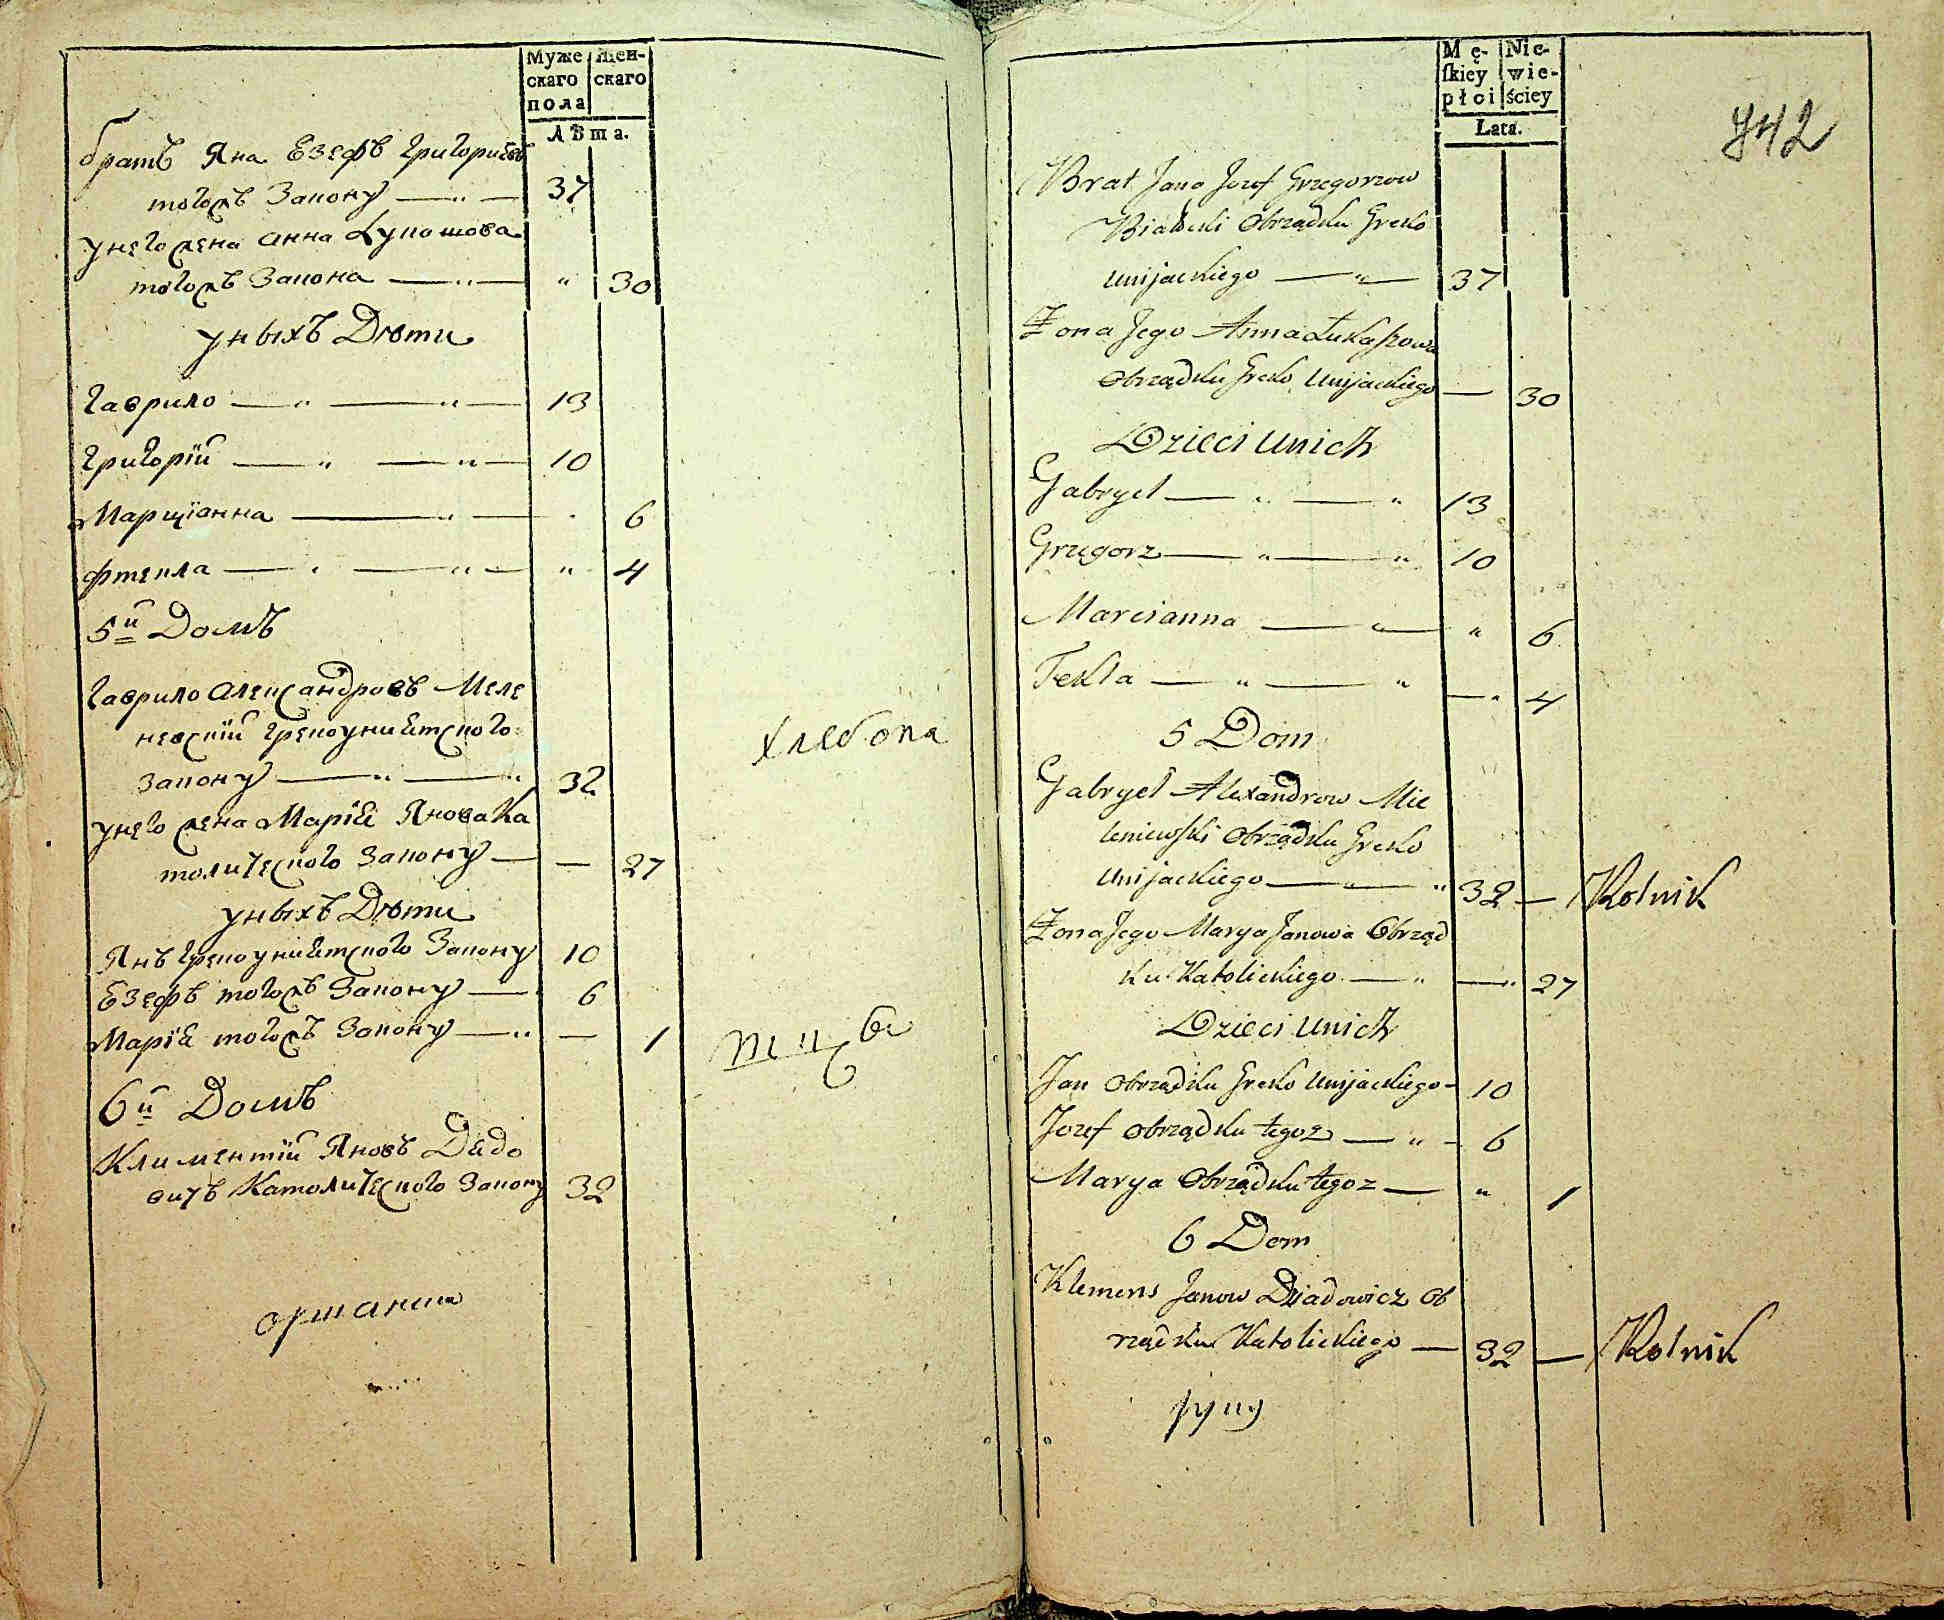 Муже скаго пола
Жен- скаго
Лѣта.
братъ Яна Езефъ Григориевъ
тогожъ Закону — " — 37
унего жена анна Лукашова
тогожъ Закона — " — " 30
уныхъ Дѣти
Гаврило — " — " — 13
Григорій — " — " — 10
Марціанна — " — 6
Фтекла — " — " — " 4
5й Домъ
Гаврило Александровъ Меле
невскій Грекоуниятского
закону — " — " 32
унего жена Марія Янова Ка
толического Закону — — 27
уныхъ Дѣти
Янъ Грекоуниятского Закону 10
Езефъ тогожъ Закону — 6
Марія тогожъ Закону — " — 1
6й Домъ
Климентій Яновъ Дядо
вичъ Католического Закону 32
оршанск
хлебопа
742
Mę- skiey płci
Nie- wie- ściey
Lata.
Brat Jana Jozef Grzegorzow
Białecki Obrządku Greko
Unijackiego — " — 37
Żona Jego Anna Łukaszowa
Obrządku Greko Unijackiego — 30
Dzieci Unich
Gabryel — " — " 13
Grzegorz — " — " 10
Marcianna — " — " 6
Tekla — " — " — " 4
5 Dom
Gabryel Alexandrow Mie
leniewski Obrządku Greko
Unijackiego — " — " 32 — Rolnik
Żona Jego Marya Janowa Obrząd
ku Katolickiego — " — " 27
Dzieci Unich
Jan Obrządku Greko Unijackiego - 10
Jozef Obrządku tegoż — " - 6
Marya Obrządku tegoz — " 1
6 Dom
Klemens Janow Dziadowicz Ob
rządku Katolickiego — 32 — Rolnik
руку